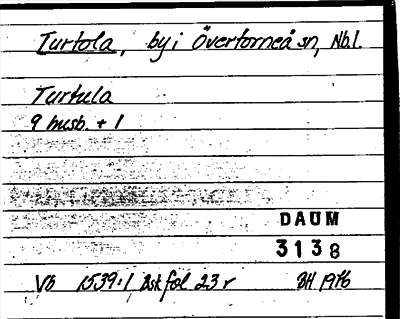 Turtola, by i Övertorneå sn, Nb.l.
Turtula
9 husb. + 1
DAUM
3138
Vb 1539:1 Bskfol 23 r BH 1976